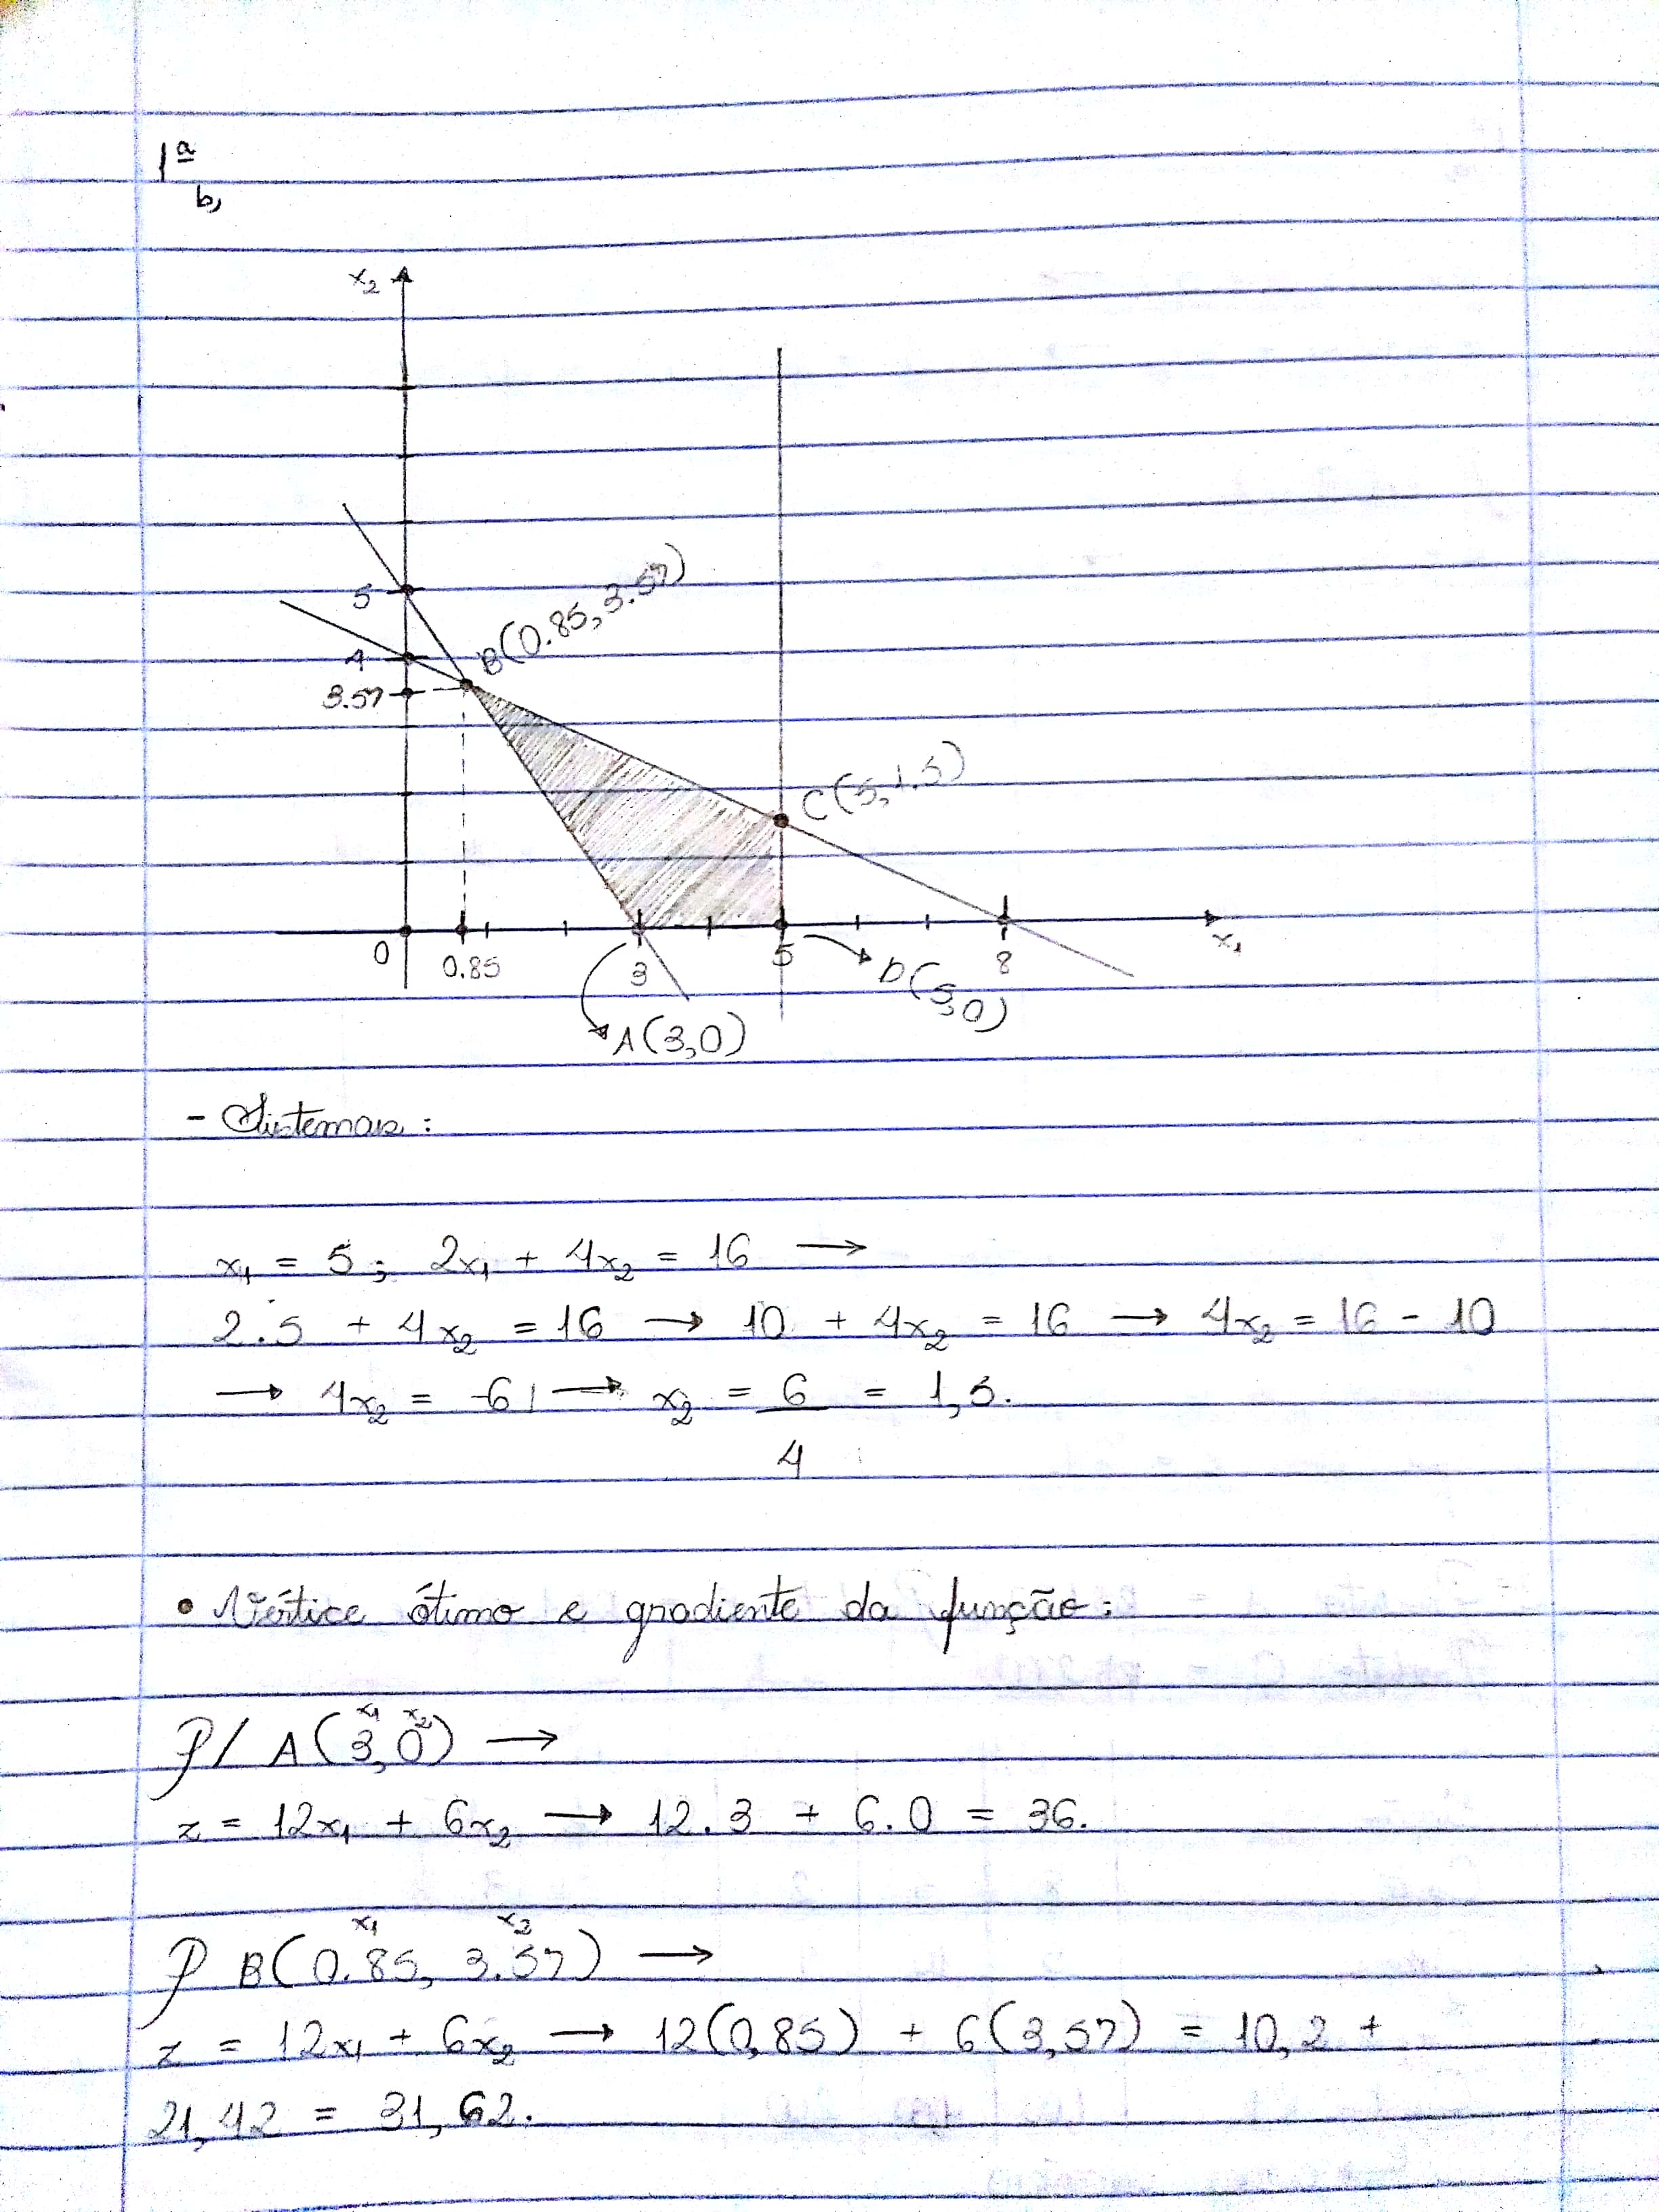 1ª
b,
x2
5
B(0.85, 3.57)
4
3.57
C(5,1.5)
0
0.85
3
5
8
x1
D(5,0)
A(3,0)
- Sistemas:
x1 = 5; 2x1 + 4x2 = 16 →
2.5 + 4x2 = 16 → 10 + 4x2 = 16 → 4x2 = 16 - 10
→ 4x2 = 6 → x2 = 6/4 = 1,5.
• Vértice ótimo e gradiente da função:
x1 x2
P/ A(3,0) →
z = 12x1 + 6x2 → 12.3 + 6.0 = 36.
x1 x2
P B(0.85, 3.57) →
z = 12x1 + 6x2 → 12(0,85) + 6(3,57) = 10,2 +
21,42 = 31,62.